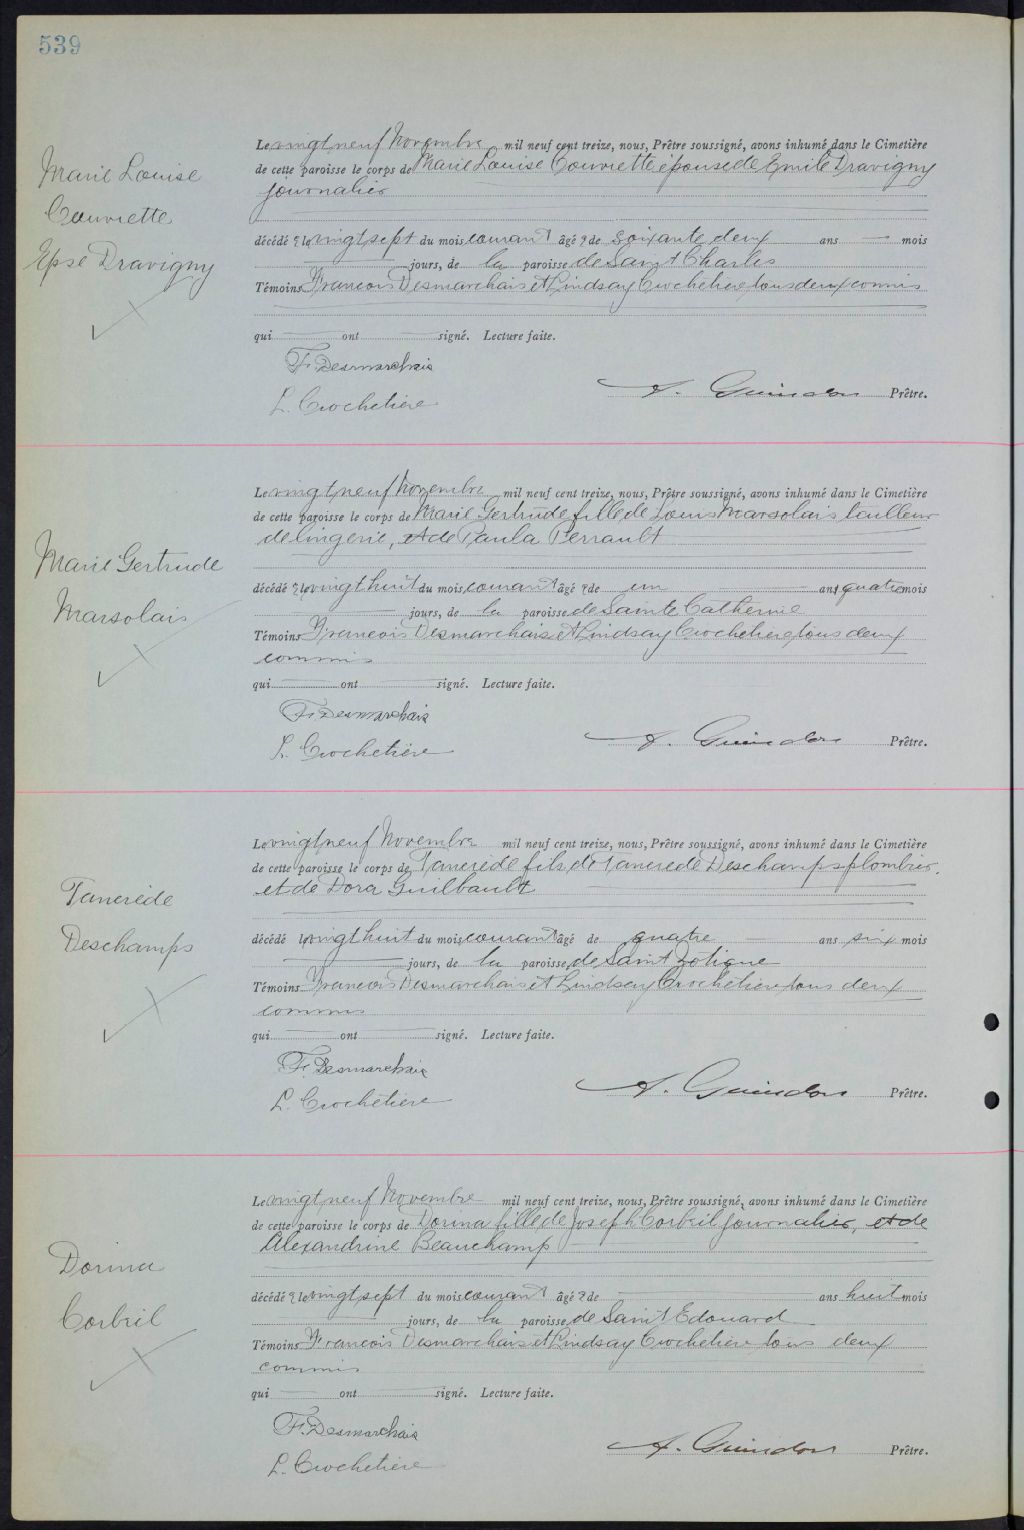 539
Marie Louise
Couvrette
Epse Dravigny
Le vingt neuf Novembre mil neuf cent treize, nous, Prêtre soussigné, avons inhumé dans le Cimetière
de cette paroisse le corps de Marie Louise Couvrette épouse de Emile Dravigny
journalier
décédé e le vingt sept du mois courant âgé e de soixante deux ans — mois
jours, de la paroisse de Saint Charles
Témoins Francois Desmarchais et Lindsay Crochetiere tous deux commis
qui — ont — signé. Lecture faite.
F. Desmarchais
L. Crochetière
A. Guindon Prêtre.
Marie Gertrude
Marsolais
Le vingt neuf Novembre mil neuf cent treize, nous, Prêtre soussigné, avons inhumé dans le Cimetière
de cette paroisse le corps de Marie Gertrude fille de Louis Marsolais tailleur
de lingerie, et de Paula Perrault
décédé e le vingt huit du mois courant âgé e de un an quatre mois
jours, de la paroisse de Sainte Catherine
Témoins Francois Desmarchais et Lindsay Crochetiere tous deux
commis
qui — ont — signé. Lecture faite.
F. Desmarchais
L. Crochetière
A. Guindon Prêtre.
Tancrède
Deschamps
Le vingt neuf Novembre mil neuf cent treize, nous, Prêtre soussigné, avons inhumé dans le Cimetière
de cette paroisse le corps de Tancrède fils de Tancrede Deschamps plombier,
et de Dora Guilbault
décédé le vingt huit du mois courant âgé de quatre — ans six mois
jours, de la paroisse de Saint Zotique
Témoins Francois Desmarchais et Lindsay Crochetiere tous deux
commis
qui — ont — signé. Lecture faite.
F. Desmarchais
L. Crochetière
A. Guindon Prêtre.
Dorina
Corbeil
Le vingt neuf Novembre mil neuf cent treize, nous, Prêtre soussigné, avons inhumé dans le Cimetière
de cette paroisse le corps de Dorina fille de Joseph Corbeil journalier, et de
Alexandrine Beauchamp
décédé e le vingt sept du mois courant âgé e de — ans huit mois
jours, de la paroisse de Saint Edouard
Témoins Francois Desmarchais et Lindsay Crochetiere tous deux
commis
qui — ont — signé. Lecture faite.
F. Desmarchais
L. Crochetière
A. Guindon Prêtre.